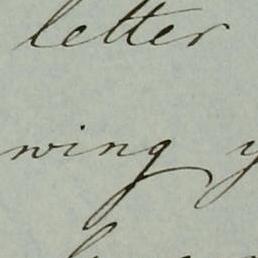 letter
wing y